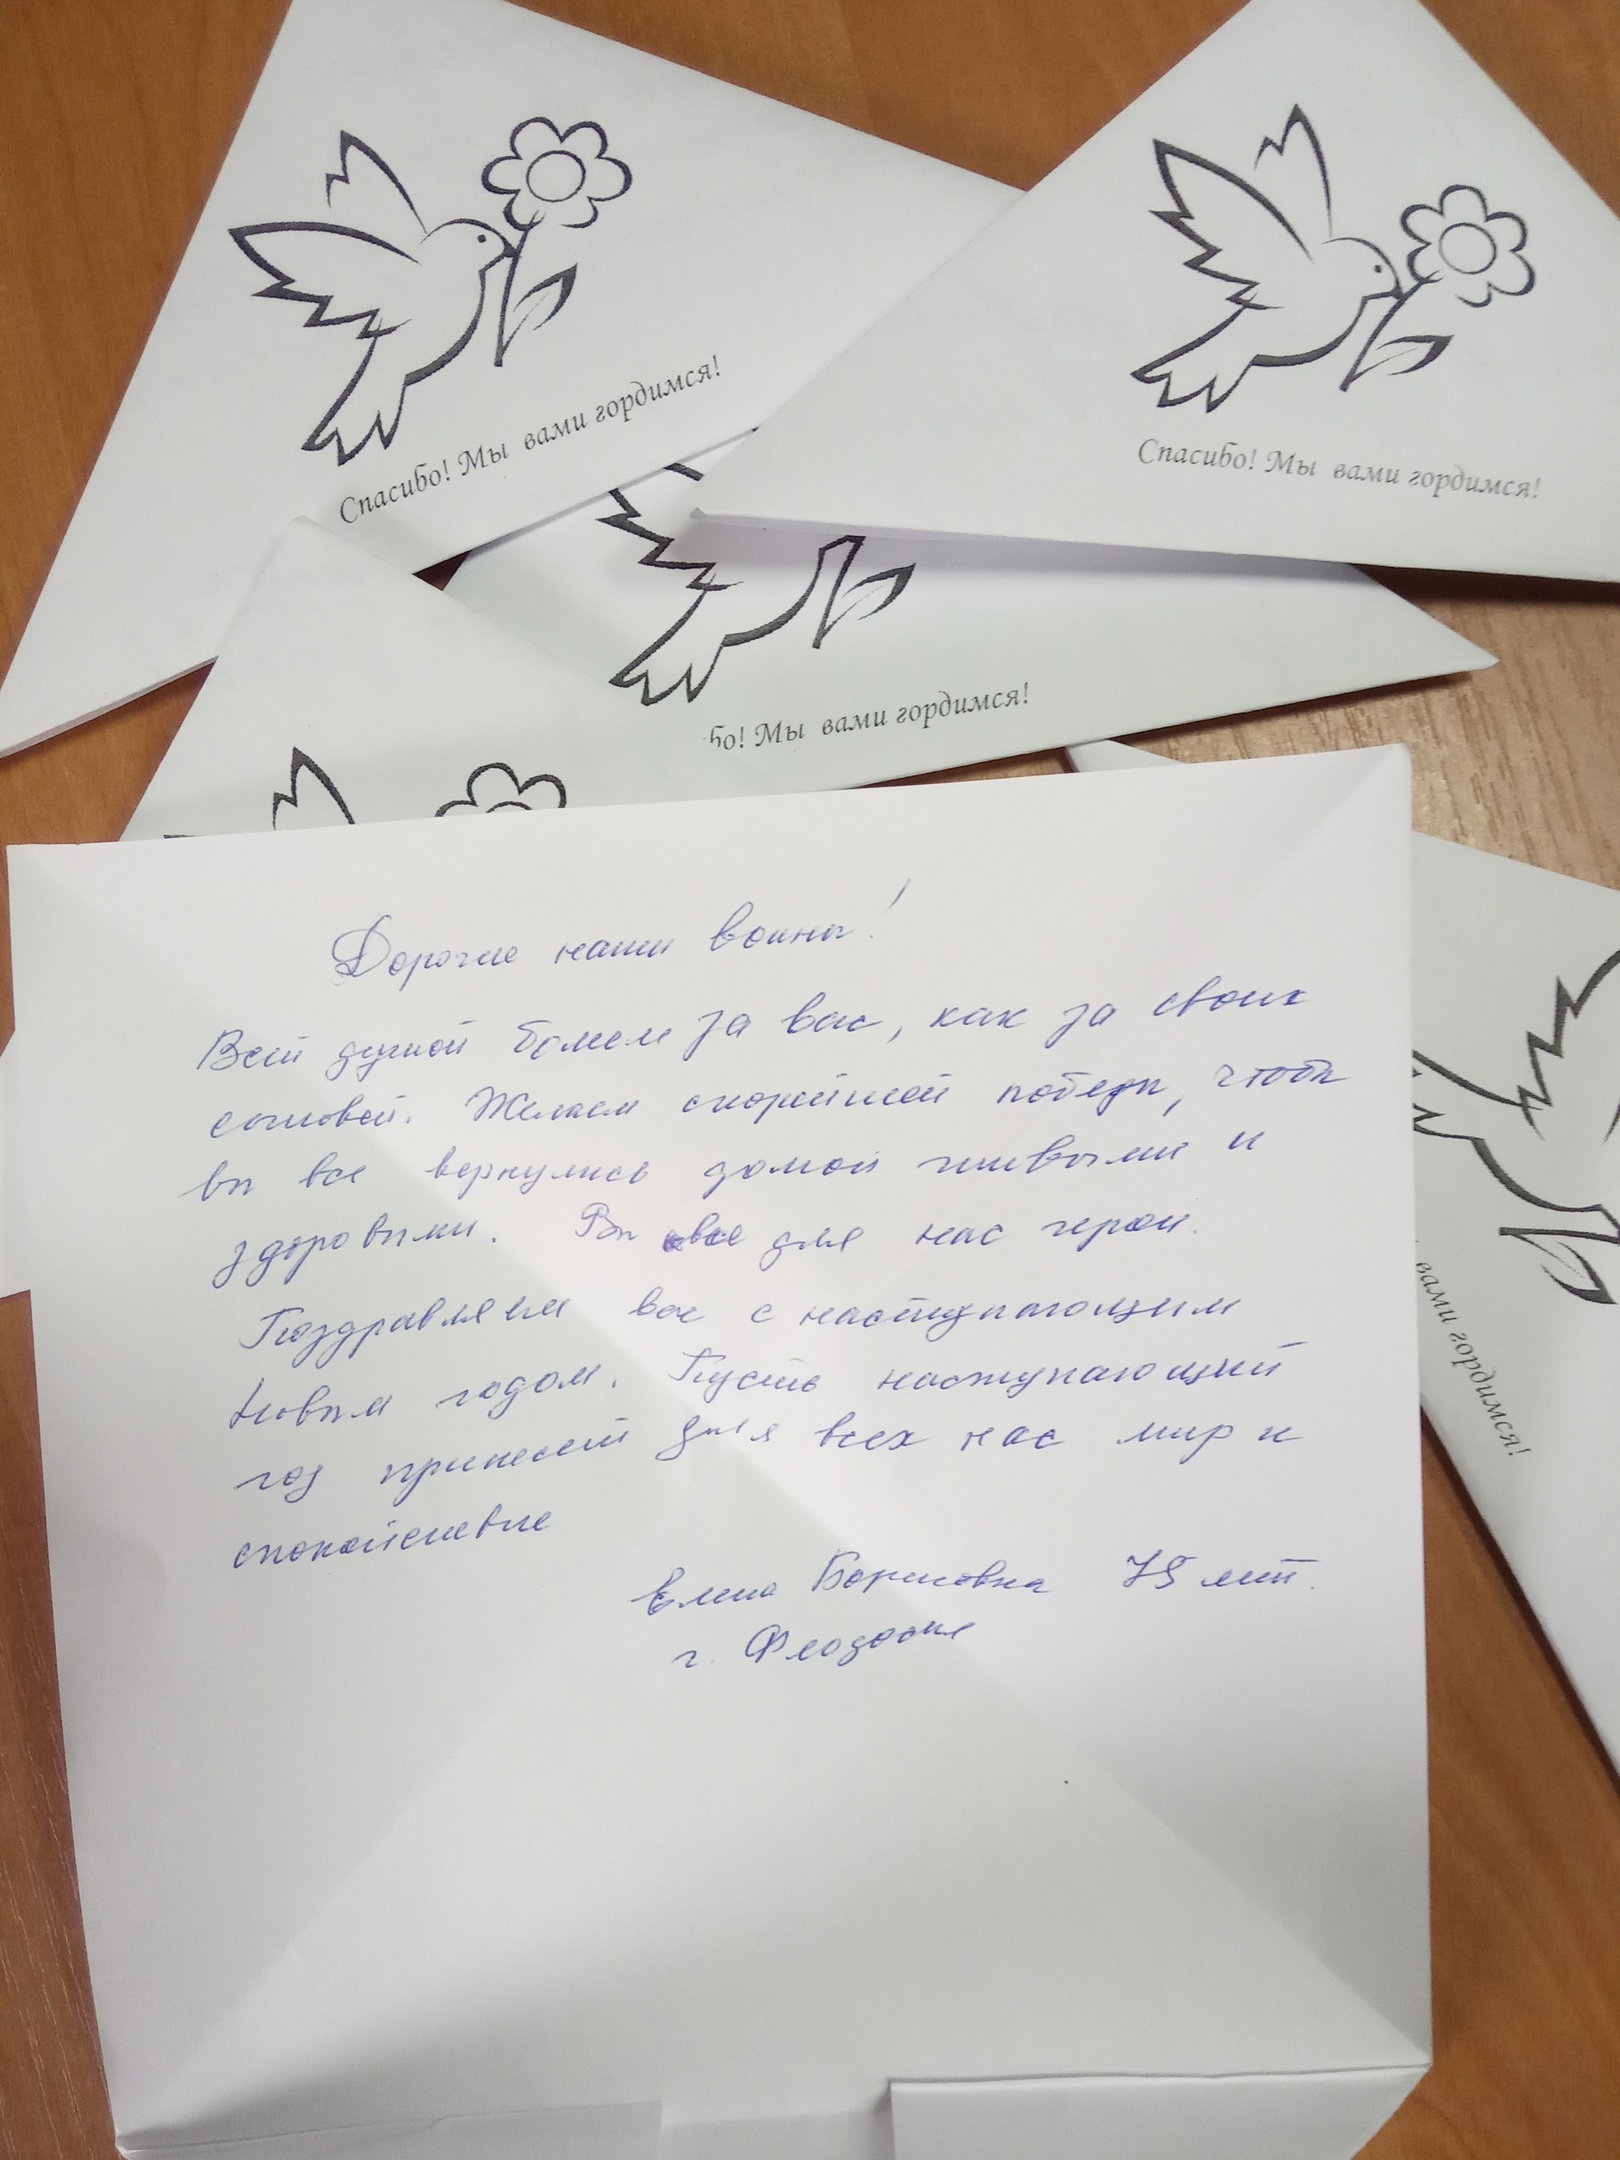 Спасибо! Мы вами гордимся!
Спасибо! Мы вами гордимся!
бо! Мы вами гордимся!
Дорогие наши воины!
Всей душой болеем за вас, как за своих
сыновей. Желаем скорейшей победы, чтобы
вы все вернулись домой живыми и
здоровыми. Вы все для нас герои.
Поздравляем вас с наступающим
Новым годом. Пусть наступающий
год принесёт для всех нас мир и
спокойствие
Елена Борисовна 75 лет.
г. Феодосия
вами гордимся!